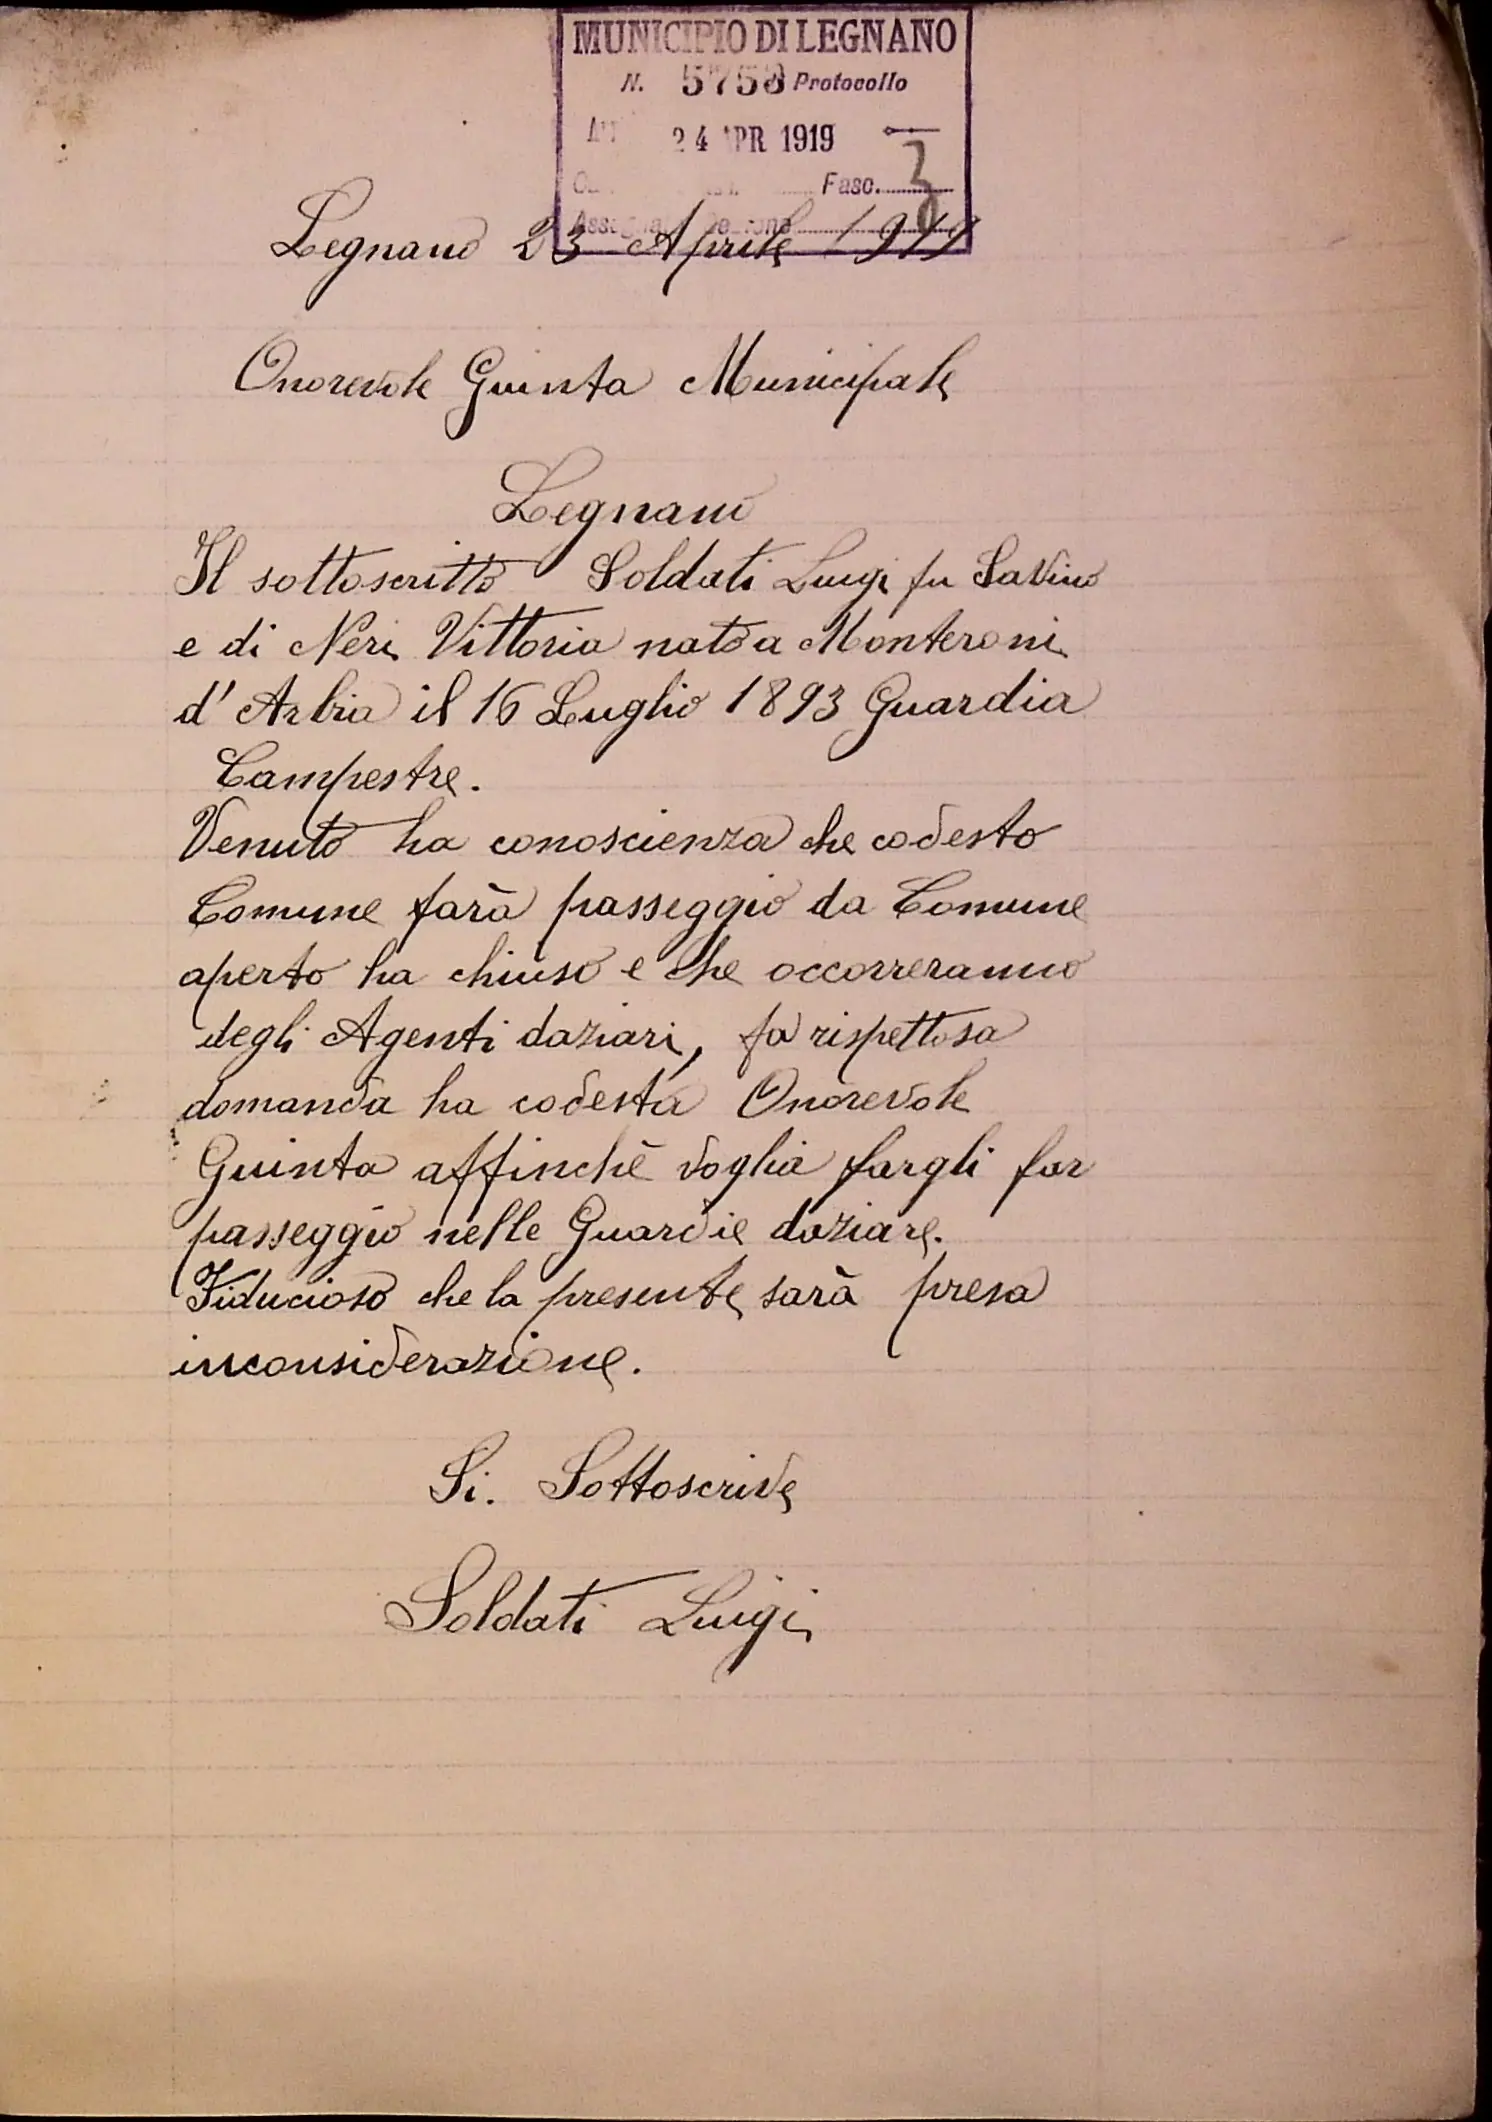 MUNICIPIO DI LEGNANO
N. 5758 Protocollo
24 APR 1919
Fasc. 3
Legnano 23 Aprile 1919
Onorevole Guinta Municipale
Legnano
Il sottoscritto Soldati Luigi fu Savino
e di Neri Vittoria nato a Monteroni
d' Arbia il 16 Luglio 1893 Guardia
Campestre.
Venuto ha conoscienza che codesto
Comune farà passeggio da Comune
aperto ha chiuso e che occorreranno
degli Agenti daziari, fa rispettosa
domanda ha codesta Onorevole
Guinta affinchè voglia fargli far
passeggio nelle Guardie daziare.
Fiducioso che la presente sarà presa
inconsiderazione.
Si. Sottoscrive
Soldati Luigi